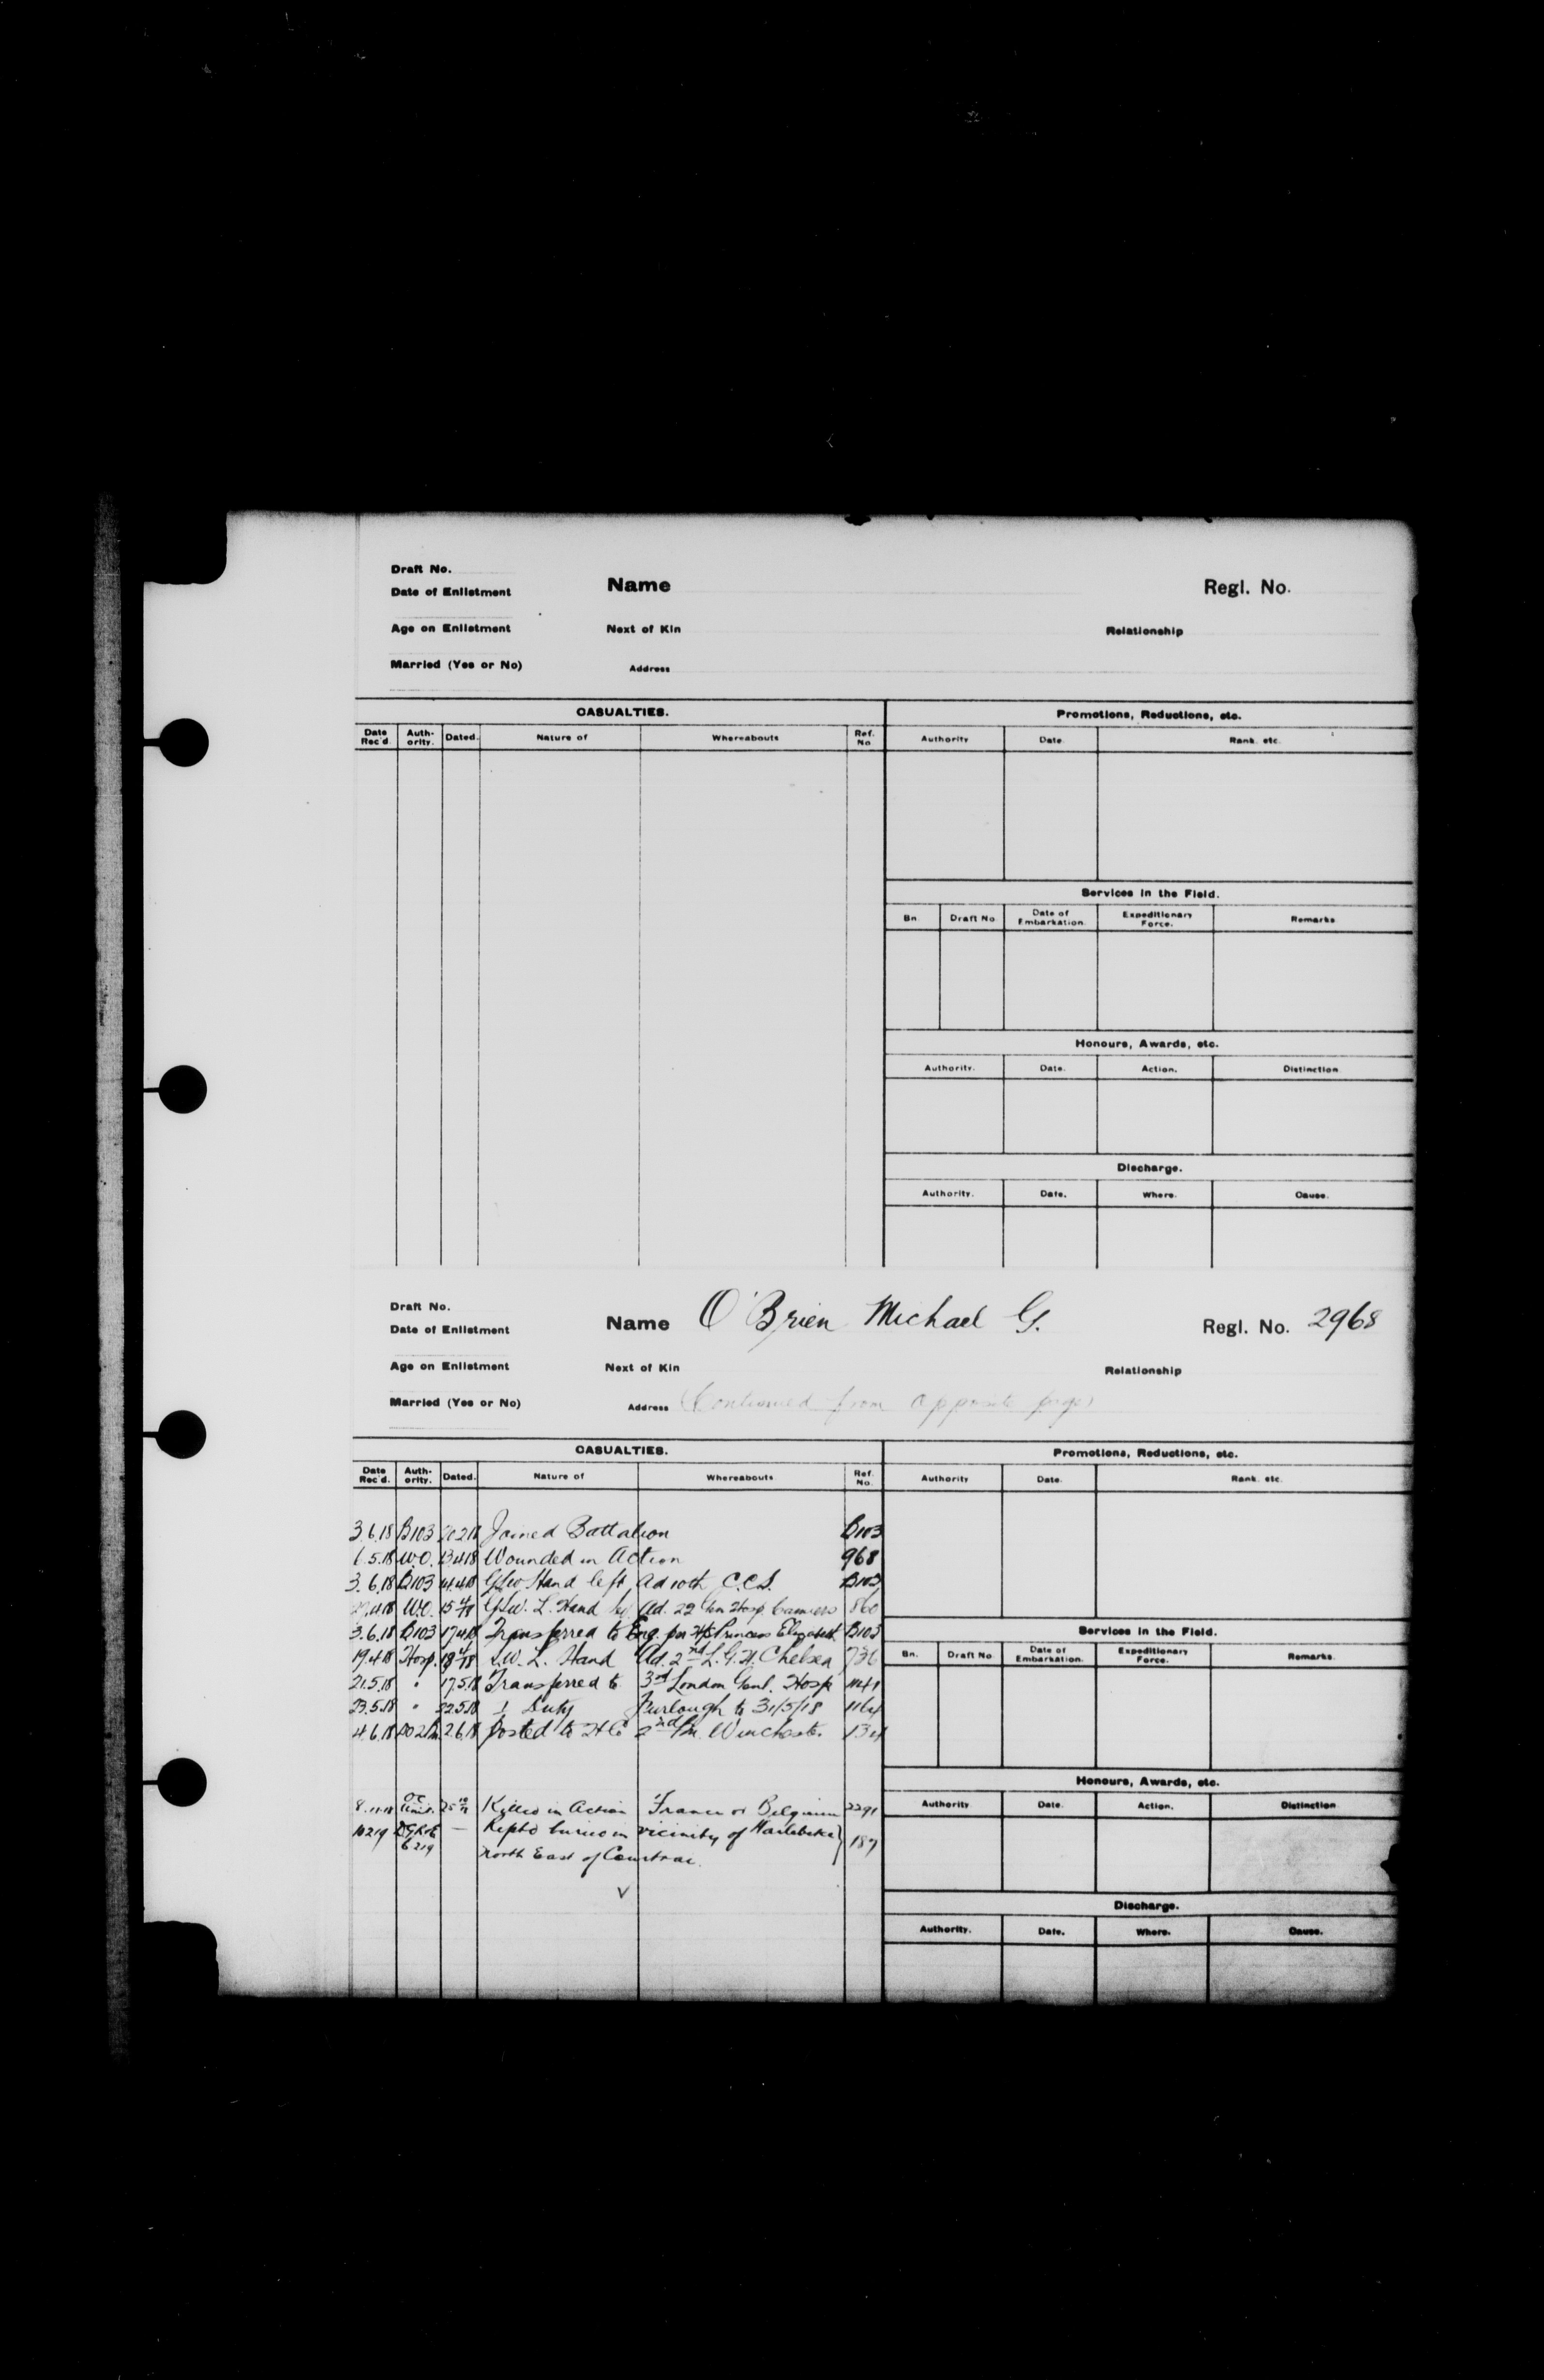 Draft No.
Date of Enlistment
Name
Regl. No.
Age on Enlistment
Next of Kin
Relationship
Married (Yes or No)
Address
CASUALTIES.
Promotions, Reductions, etc.
Date Rec'd. Auth-ority. Dated. Nature of Whereabouts Ref. No.
Authority Date. Rank, etc.
Services in the Field.
Bn. Draft No. Date of Embarkation. Expeditionary Force. Remarks
Honours, Awards, etc.
Authority. Date. Action. Distinction
Discharge.
Authority. Date. Where. Cause.
Draft No.
Date of Enlistment
Name O'Brien Michael G.
Regl. No. 2968
Age on Enlistment
Next of Kin
Relationship
Married (Yes or No)
Address (Continued from opposite page)
CASUALTIES.
Promotions, Reductions, etc.
Date Rec'd. Auth-ority. Dated. Nature of Whereabouts Ref. No.
Authority Date. Rank, etc.
3.6.18 B103 Joined Battalion B103
1.5.18 W.O. 13.4.18 Wounded in Action 968
3.6.18 B103 14.4.18 GSW Hand left Ad 10th C.C.S. B103
W.O. 15 4/18 GSW. L. Hand Ad. 22 Gen Hosp. Camiers 860
3.6.18 B103 17.4.18 Transferred to Eng. per H/S Princess Elizabeth B103
19.4.18 Hosp. 18 4/18 S.W. L. Hand Ad. 2nd L.G.H. Chelsea 736
21.5.18 " 17.5.18 Transferred to 3rd London Genl. Hosp 1141
23.5.18 " 22.5.18 Duty Furlough to 31/5/18 1164
4.6.18 2.6.18 Posted to H Co 2nd Bn. Winchester
Services in the Field.
Bn. Draft No. Date of Embarkation. Expeditionary Force. Remarks.
Honours, Awards, etc.
Authority. Date. Action. Distinction
8.11.18 O.C. Unit. 25 10/18 Killed in Action France or Belgium 2291
10219 DGR&E 6219 — Reptd buried in vicinity of Harlebeke } 187
North East of Courtrai.
Discharge.
Authority. Date. Where. Cause.